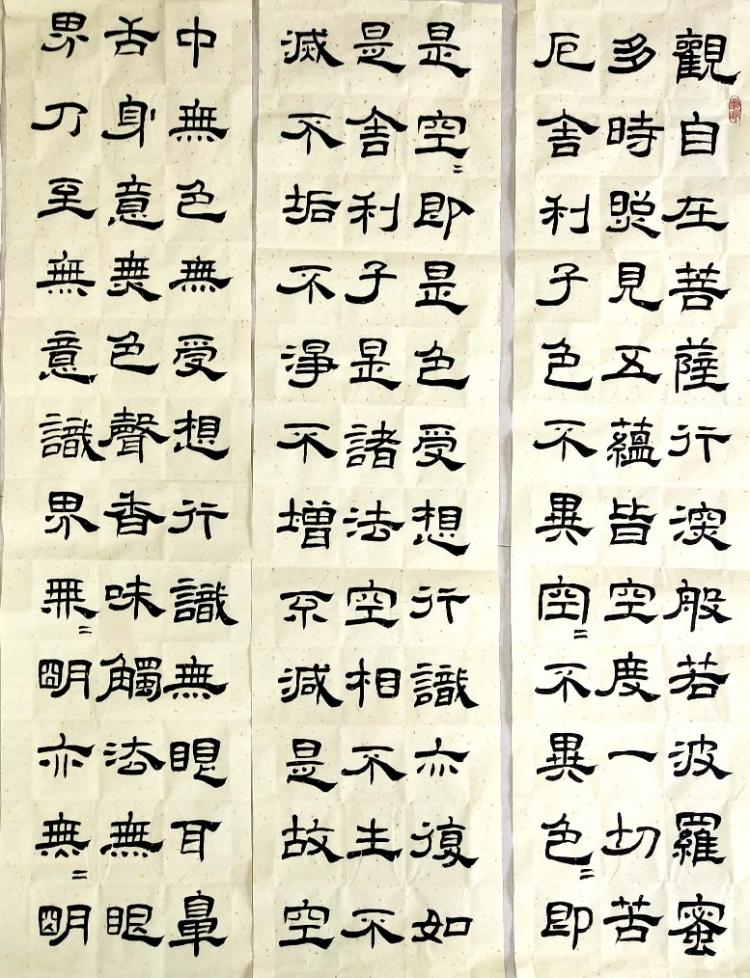 觀自在菩薩行深般若波羅蜜
多時照見五蘊皆空度一切苦
厄舍利子色不異空〻不異色〻即
是空〻即是色受想行識亦復如
是舍利子是諸法空相不生不
滅不垢不淨不增不減是故空
中無色無受想行識無眼耳鼻
舌身意無色聲香味觸法無眼
界乃至無意識界無〻明亦無〻明